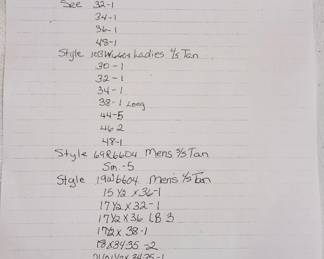 See 32-1
34-1
36-1
48-1
Style Ladies 4/5 Tan
30-1
32-1
34-1
38-1 Long
44-5
46-2
48-1
Style 69R6604 Mens 3/5 Tan
Sm.-5
Style 19W6604 Men's 4/5 Tan
15 1/2 x 36-1
17 1/2 x 32-1
17 1/2 x 36 LB 3
17 1/2 x 38-1
18 x 3435-2